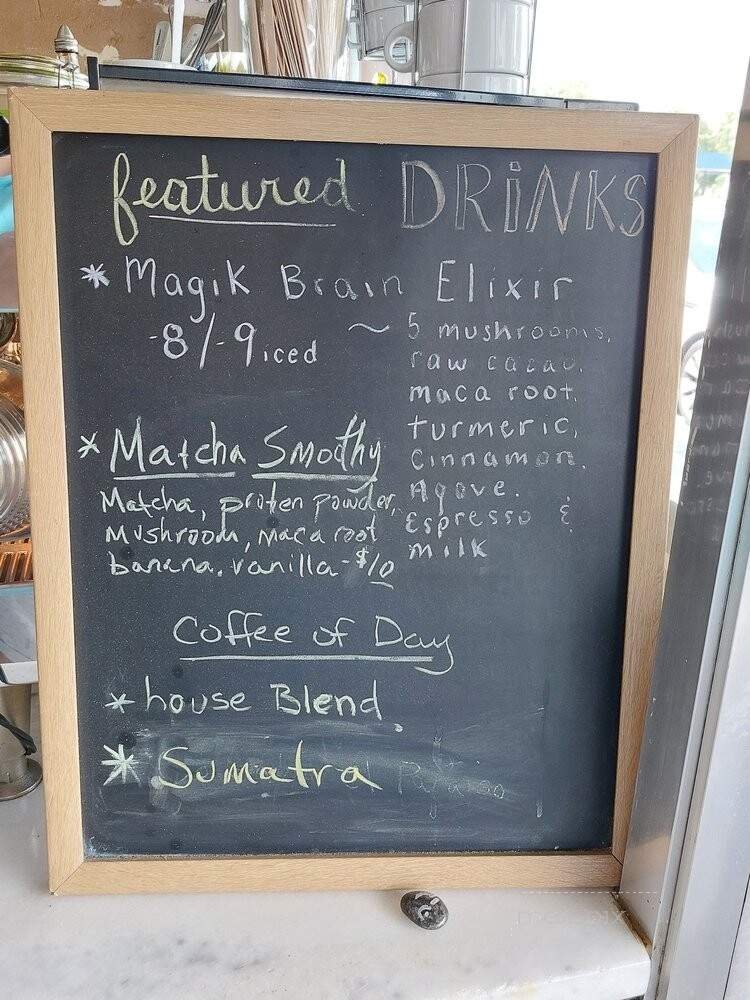 featured DRiNKS
* Magik Brain Elixir
-8/-9 iced
~ 5 mushrooms,
raw cacao,
maca root,
turmeric,
Cinnamon,
Agave.
Espresso &
milk
* Matcha Smothy
Matcha, proten powder,
Mushroom, maca root
banana, vanilla - $10
Coffee of Day
* house Blend,
* Sumatra